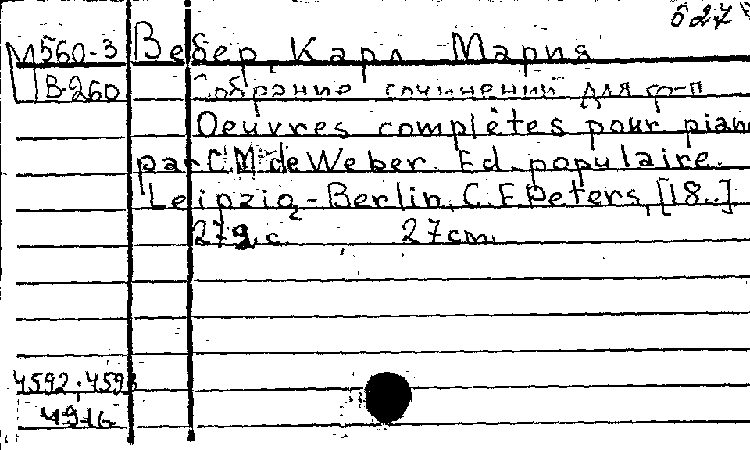 527
М560-3 Вебер, Карл Мария
В-260 Собрание сочинений для ф-п
Oeuvres complètes pour pian
par C.M. de Weber. Ed. populaire.
Leipzig-Berlin, C.F. Peters, [18..]
279 с. 27 cm.
4592; 4593